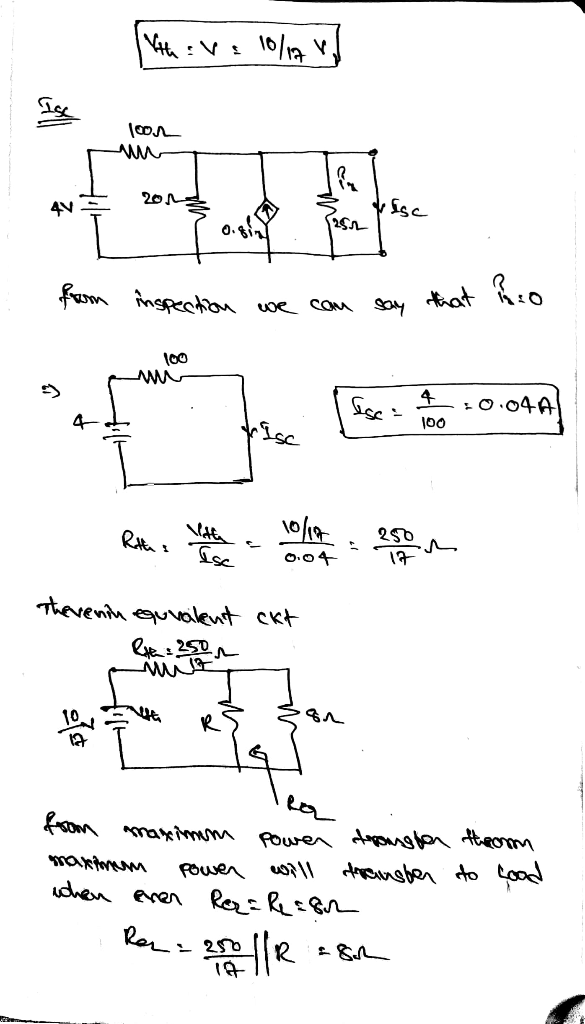 Vth = V = 10/17 V
Isc
100Ω
4V
20Ω
0.8ix
ix
25Ω
Isc
from inspection we can say that ix=0
⇒
100
4
Isc
Isc = 4/100 = 0.04A
Rth = Vth/Isc = (10/17)/0.04 = 250/17 Ω
Thevenin equvalent ckt
Rth = 250/17 Ω
10/17 V
Vth
R
8Ω
Req
from maximum power transfer theorm
maximum power will transfer to load
when ever Req = RL = 8Ω
Req = 250/17 || R = 8Ω